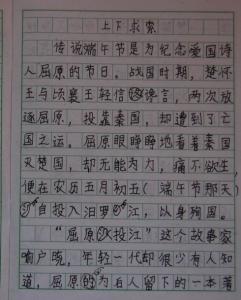 上下求索
传说端午节是为纪念爱国诗
人屈原的节日。战国时期，楚怀
王与顷襄王轻信谗言，两次放
逐屈原，投靠秦国，却遭到了亡
国之运。屈原眼睁睁地看着秦国
灭楚国，却无能为力，痛不欲生，
便在农历五月初五（端午节那天）
自投入汨罗江，以身殉国。
“屈原投江”这个故事家
喻户晓，年轻一代却很少有人知
道，屈原的为后人留下的一本著